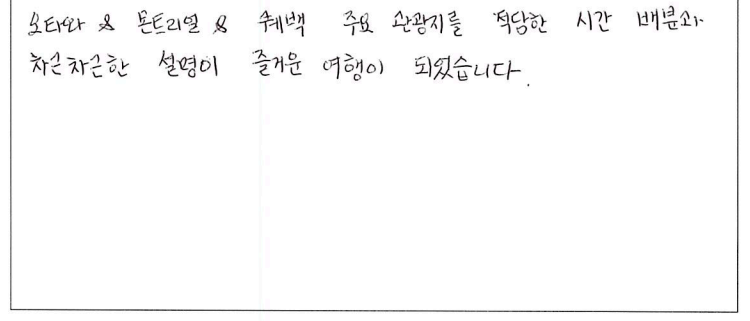 오타와 & 몬트리얼 & 퀘백 주요 관광지를 적당한 시간 배분과
차근차근한 설명이 즐거운 여행이 되었습니다.